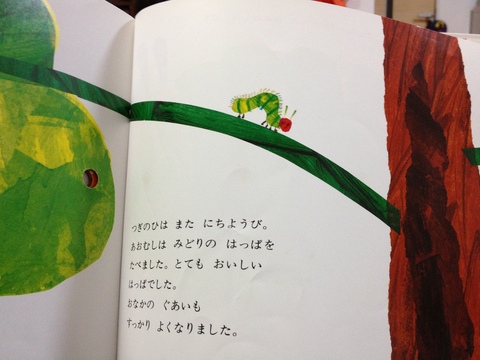 つぎのひは また にちようび。
あおむしは みどりの はっぱを
たべました。とても おいしい
はっぱでした。
おなかの ぐあいも
すっかり よくなりました。